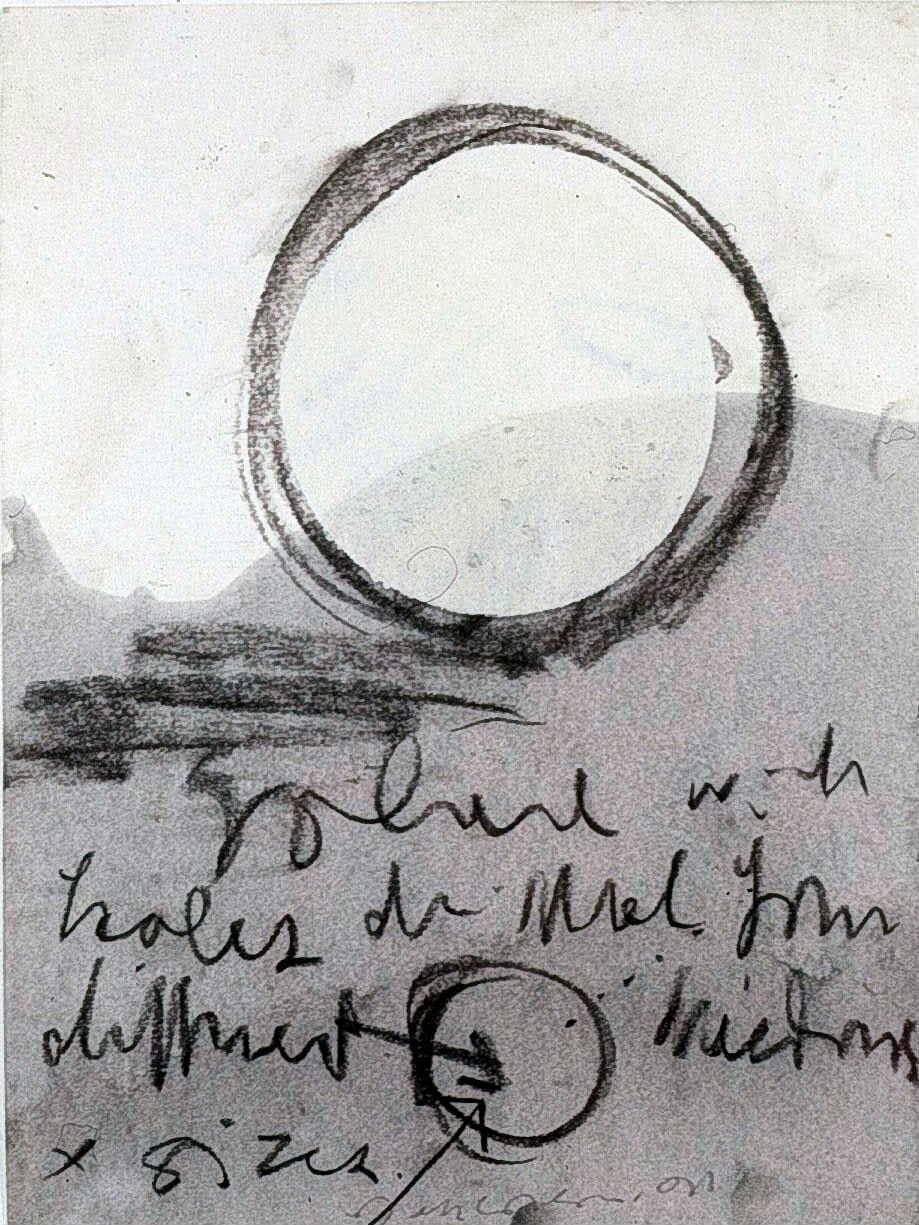 sphere with
holes drilled from
different directions
+ sizes.